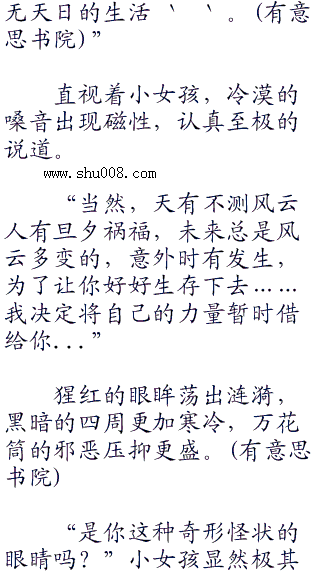 无天日的生活 ｀ ｀ 。(有意
思书院)”
直视着小女孩，冷漠的
嗓音出现磁性，认真至极的
说道。
www.shu008.com
“当然，天有不测风云
人有旦夕祸福，未来总是风
云多变的，意外时有发生，
为了让你好好生存下去……
我决定将自己的力量暂时借
给你...”
猩红的眼眸荡出涟漪，
黑暗的四周更加寒冷，万花
筒的邪恶压抑更盛。(有意思
书院)
“是你这种奇形怪状的
眼睛吗？”小女孩显然极其